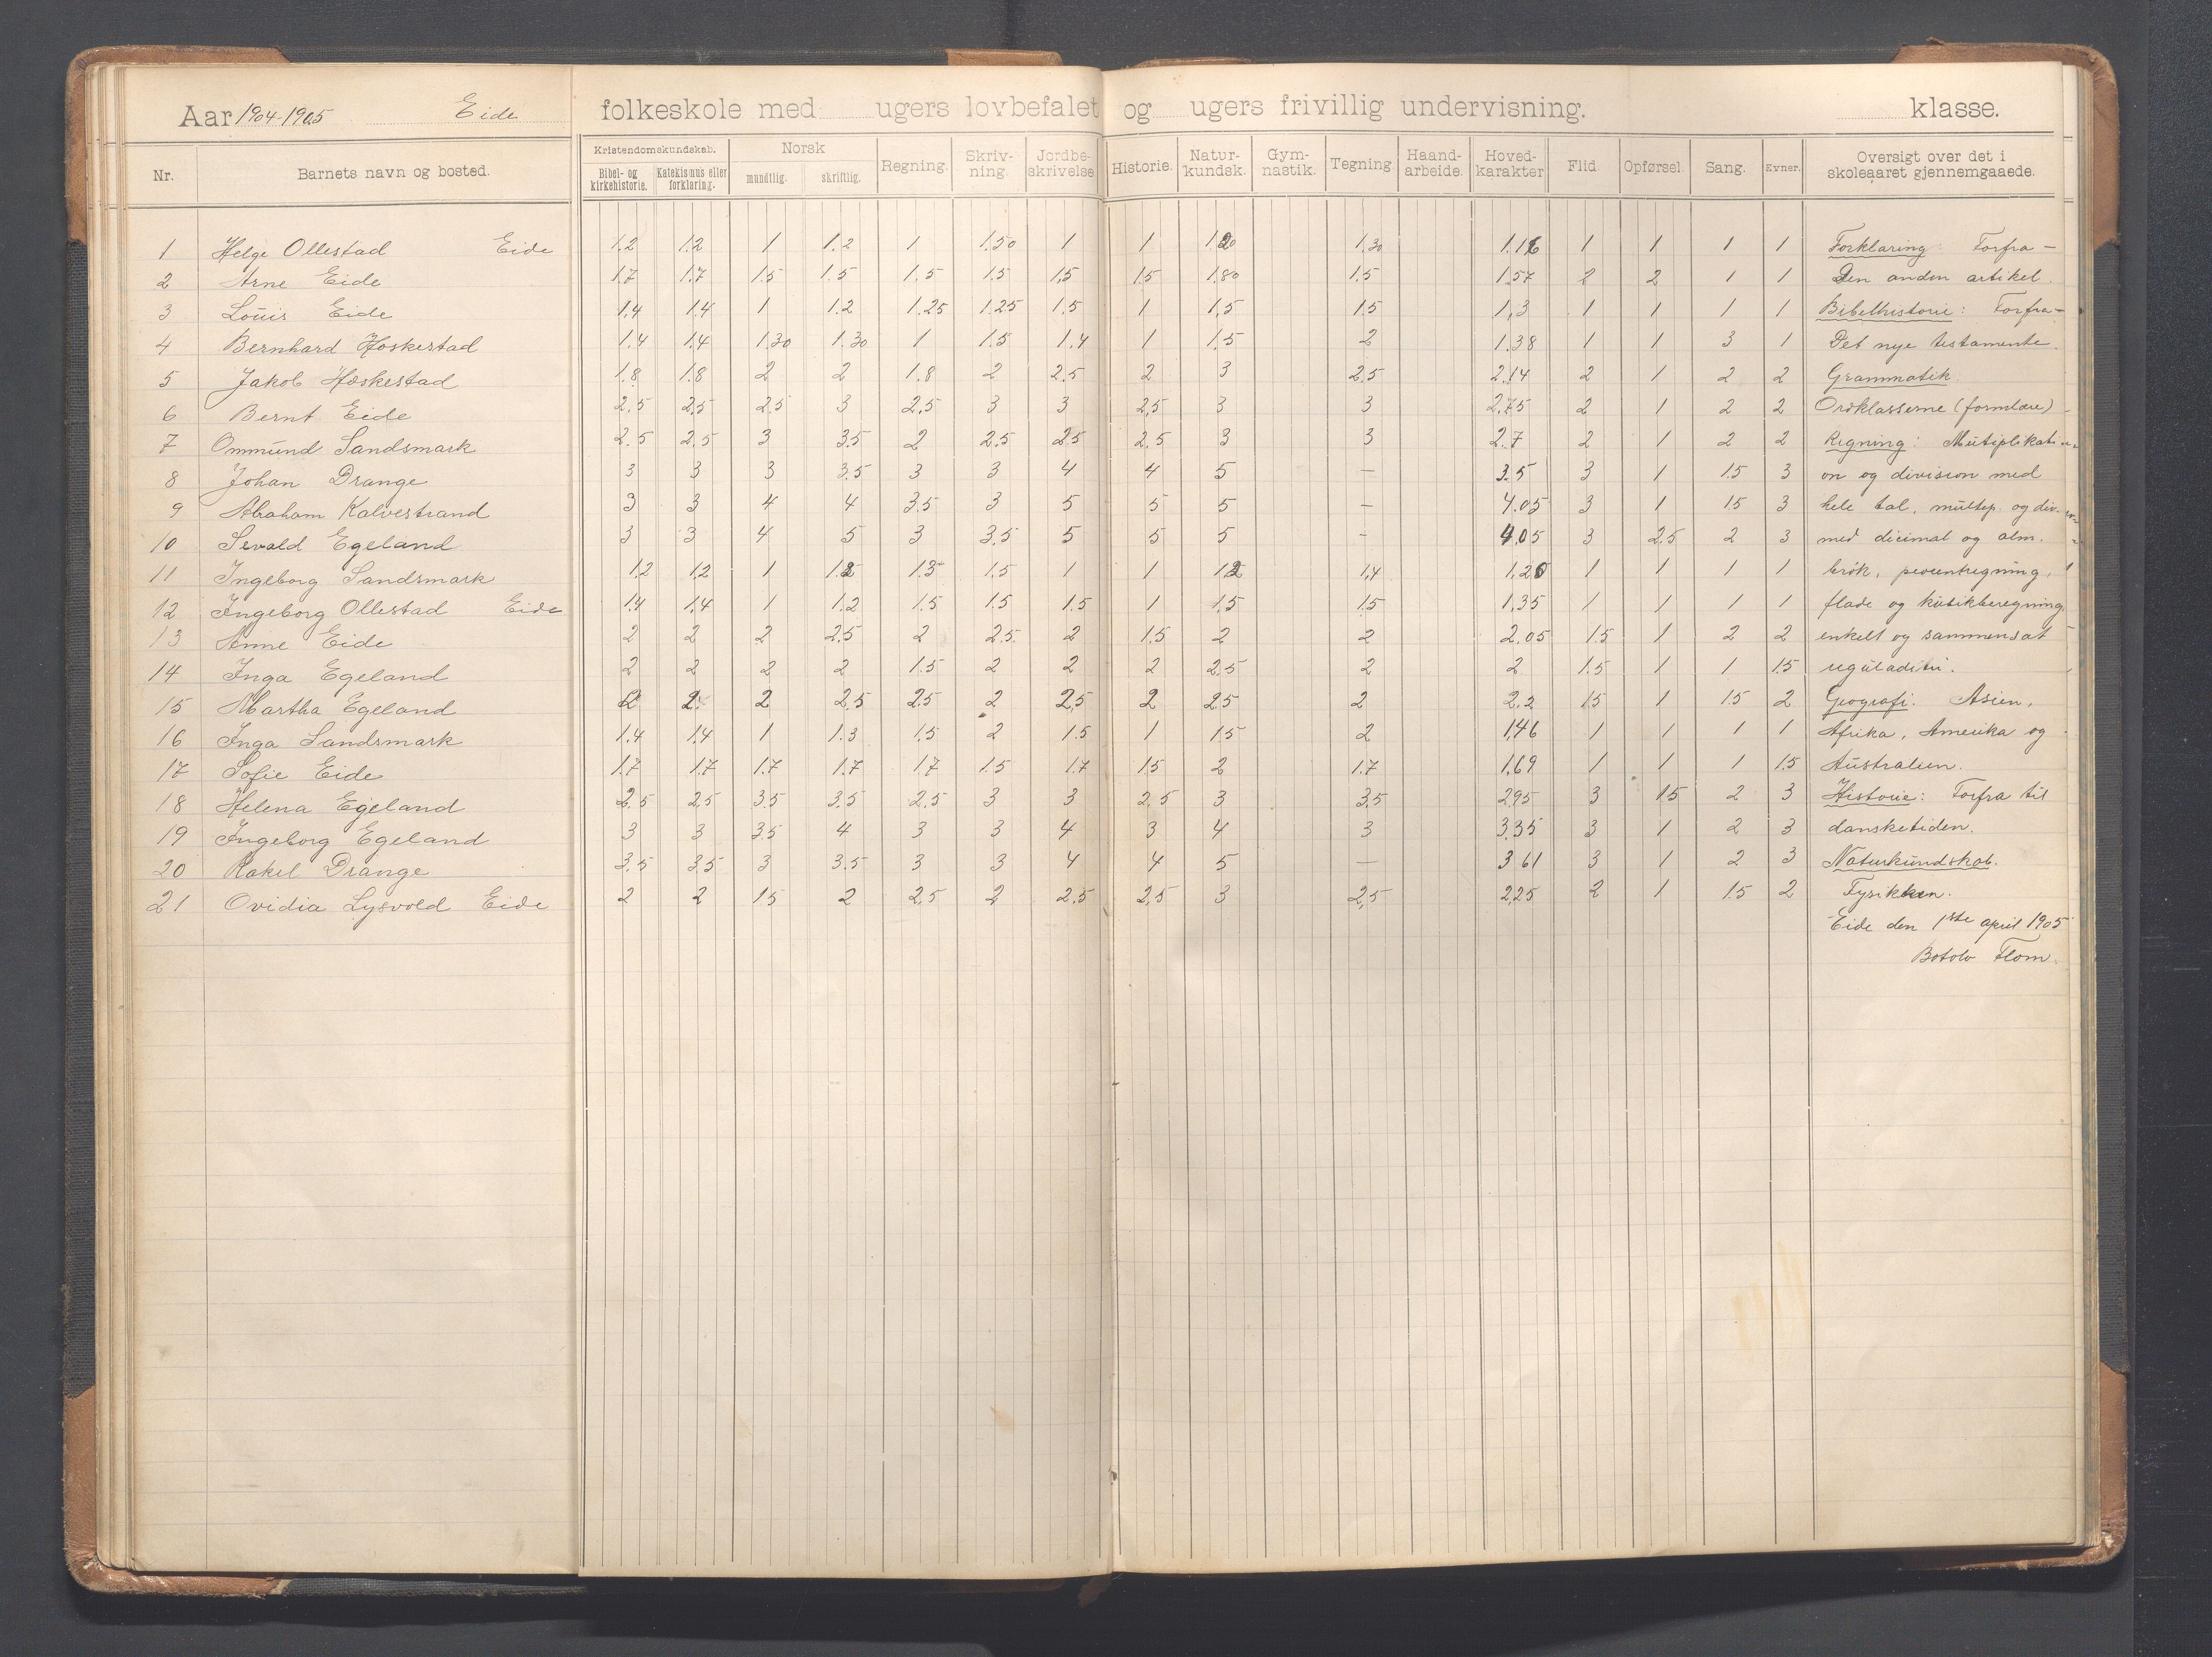 Aar 1904-1905 Eide folkeskole med ugers lovbefalet og ugers frivillig undervisning. klasse.
Nr. Barnets navn og bosted. Kristendomskundskab. Bibel- og kirkehistorie. Katekismus eller forklaring. Norsk mundtlig. skriftlig. Regning. Skriv-ning. Jordbe-skrivelse Historie. Natur-kundsk. Gym-nastik. Tegning Haand-arbeide. Hoved-karakter Flid. Opførsel. Sang. Evner. Oversigt over det i skoleaaret gjennemgaaede.
1 Helge Ollestad Eide 1.2 1.2 1 1.2 1 1.50 1 1 1.20 1.30 1.16 1 1 1 1 Forklaring: Forfra –
2 Arne Eide 1.7 1.7 1.5 1.5 1.5 1.5 1.5 1.5 1.80 1.5 1.57 2 2 1 1 Den anden artikel.
3 Louis Eide 1.4 1.4 1 1.2 1.25 1.25 1.5 1 1.5 1.5 1,3 1 1 1 1 Bibelhistorie: Forfra –
4 Bernhard Hoskestad 1.4 1.4 1.30 1.30 1 1.5 1.4 1 1.5 2 1.38 1 1 3 1 Det nye testamente.
5 Jakob Hæskestad 1.8 1.8 2 2 1.8 2 2.5 2 3 2.5 2.14 2 1 2 2 Grammatik.
6 Bernt Eide 2.5 2.5 2.5 3 2.5 3 3 2.5 3 3 2.75 2 1 2 2 Ordklasserne (formlære)
7 Ommund Sandsmark 2.5 2.5 3 3.5 2 2.5 2.5 2.5 3 3 2.7 2 1 2 2 Regning: Mutiplikati-
8 Johan Drange 3 3 3 3.5 3 3 4 4 5 – 3.5 3 1 1.5 3 on og division med
9 Abraham Kalvestrand 3 3 4 4 3.5 3 5 5 5 – 4.05 3 1 1.5 3 hele tal, multip. og div.
10 Sevald Egeland 3 3 4 5 3 3.5 5 5 5 – 4.05 3 2.5 2 3 med dicimal og alm.
11 Ingeborg Sandsmark 1.2 1.2 1 1.2 1.3 1.5 1 1 1.2 1.4 1.20 1 1 1 1 brøk, procentregning,
12 Ingeborg Ollestad Eide 1.4 1.4 1 1.2 1.5 1.5 1.5 1 1.5 1.5 1.35 1 1 1 1 flade og kubikberegning
13 Anne Eide 2 2 2 2.5 2 2.5 2 1.5 2 2 2.05 1.5 1 2 2 enkelt og sammensat
14 Inga Egeland 2 2 2 2 1.5 2 2 2 2.5 2 2 1.5 1 1 1.5 reguladetri.
15 Martha Egeland 2 2 2 2.5 2.5 2 2.5 2 2.5 2 2.2 1.5 1 1.5 2 Geografi: Asien,
16 Inga Sandsmark 1.4 1.4 1 1.3 1.5 2 1.5 1 1.5 2 1.46 1 1 1 1 Afrika, Amerika og
17 Sofie Eide 1.7 1.7 1.7 1.7 1.7 1.5 1.7 1.5 2 1.7 1.69 1 1 1 1.5 Australien.
18 Helena Egeland 2.5 2.5 3.5 3.5 2.5 3 3 2.5 3 3.5 2.95 3 1.5 2 3 Historie: Forfra til
19 Ingeborg Egeland 3 3 3.5 4 3 3 4 3 4 3 3.35 3 1 2 3 dansketiden.
20 Rakel Drange 3.5 3.5 3 3.5 3 3 4 4 5 – 3.61 3 1 2 3 Naturkundskab.
21 Ovidia Lysvold Eide 2 2 1.5 2 2.5 2 2.5 2.5 3 2.5 2.25 2 1 1.5 2 Fysikken.
Eide den 1ste april 1905
Botolv Flom.